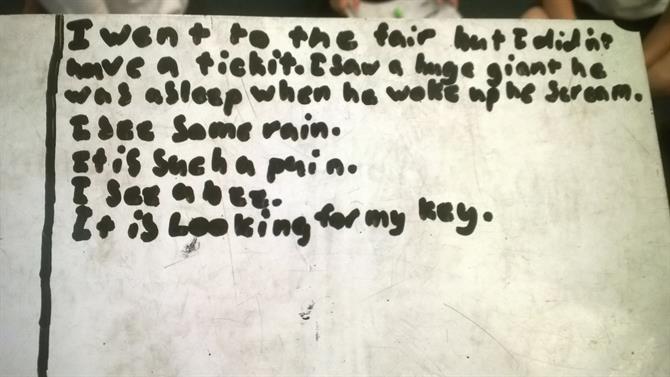 I went to the fair but I didnt
have a tickit. I saw a huge giant he
was asleep when he woke up he scream.
I see some rain.
It is such a pain.
I see a bee.
It is Looking for my key.